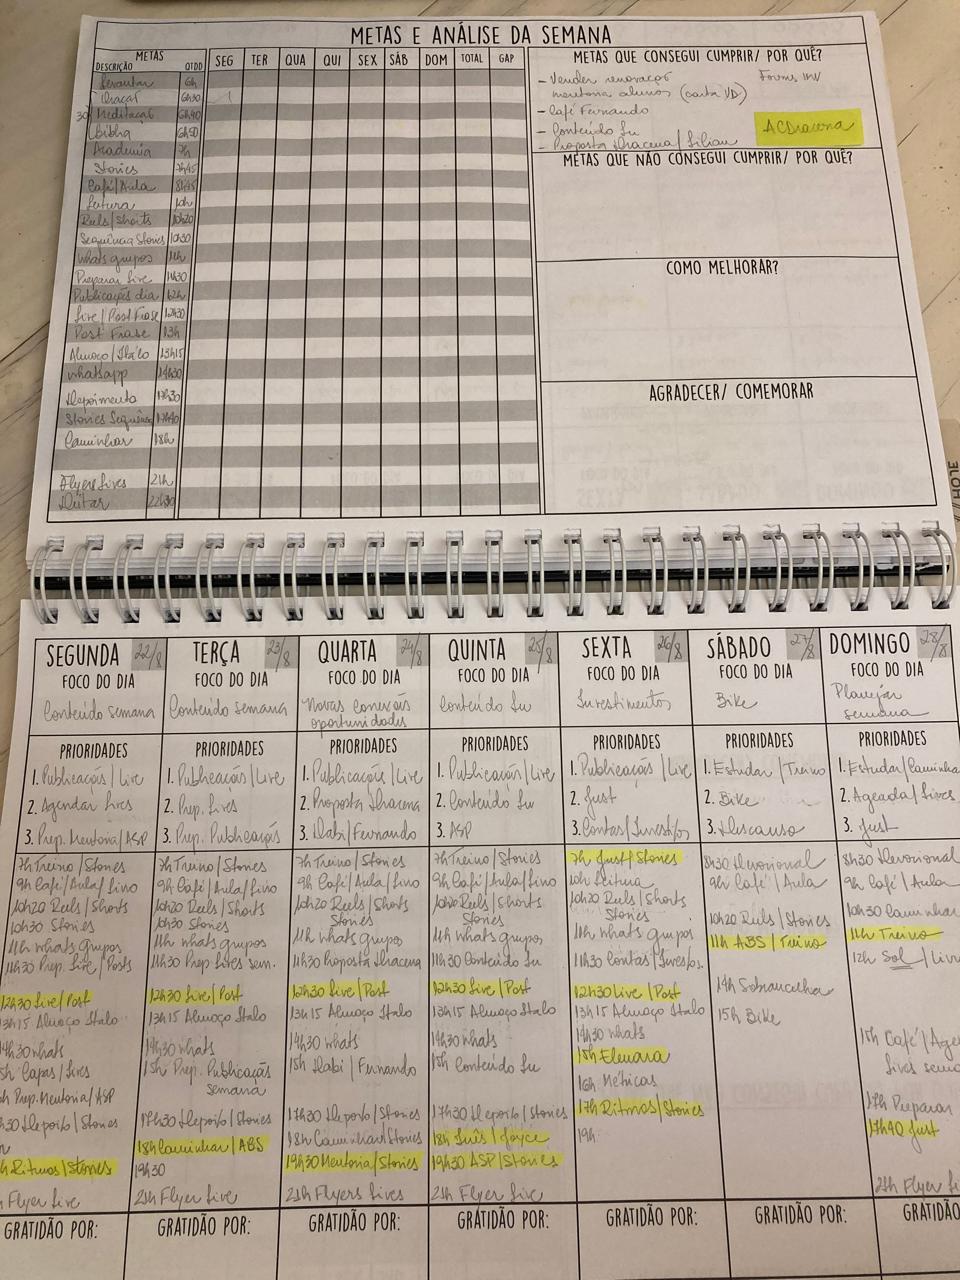 METAS E ANÁLISE DA SEMANA
METAS
DESCRIÇÃO QTDD SEG TER QUA QUI SEX SÁB DOM TOTAL GAP
Levantar 6h
Oração 6h30
30' Meditação 6h40
Bíblia 6h50
Academia 7h
Stories 7h45
Café/Aula 8h45
Leitura 10h
Reels/Shorts 10h20
Sequência Stories 10h30
Whats grupos 11h
Preparar Live 11h30
Publicações dia 12h
Live/Post Frase 12h30
Post Frase 13h
Almoço/Ítalo 13h15
Whatsapp 14h30
Depoimento 17h30
Stories Sequência 17h40
Caminhar 18h
Flyer Lives 21h
Deitar 22h30
METAS QUE CONSEGUI CUMPRIR/ POR QUÊ?
- Vender renovação Forms INV
mentoria alunos (carta VD)
- Café Fernando
- Conteúdo Lu
- Proposta Dracena/Lilian
ACDracena
METAS QUE NÃO CONSEGUI CUMPRIR/ POR QUÊ?
COMO MELHORAR?
AGRADECER/ COMEMORAR
SEGUNDA 22/8
FOCO DO DIA
Conteúdo semana
PRIORIDADES
1. Publicação/Live
2. Agendar lives
3. Prep. Mentoria/ASP
7h Treino/Stories
9h Café/Aula/Lino
10h20 Reels/Shorts
10h30 Stories
11h Whats grupos
11h30 Prep. Live/Posts
12h30 Live/Post
13h15 Almoço Italo
14h30 Whats
5h Capas/Lives
h Prep. Mentoria/ASP
h30 Depoi/o Stories
h Ritmos/Stories
h Flyer Live
GRATIDÃO POR:
TERÇA 23/8
FOCO DO DIA
Conteúdo semana
PRIORIDADES
1. Publicação/Live
2. Prep. Lives
3. Prep. Publicação
7h Treino/Stories
9h Café/Aula/Lino
10h20 Reels/Shorts
10h30 Stories
11h Whats grupos
11h30 Prep Lives sem.
12h30 Live/Post
13h15 Almoço Italo
14h30 Whats
15h Prep. Publicação
semana
17h30 Depoi/o/Stories
18h Caminhar/ABS
19h30
21h Flyer Live
GRATIDÃO POR:
QUARTA 24/8
FOCO DO DIA
Novas conexões
oportunidades
PRIORIDADES
1. Publicação/Live
2. Proposta Dracena
3. Dabi/Fernando
7h Treino/Stories
9h Café/Aula/Lino
10h20 Reels/Shorts
Stories
11h Whats grupos
11h30 Proposta Dracena
12h30 Live/Post
13h15 Almoço Italo
14h30 Whats
15h Dabi/Fernando
17h30 Depoi/o/Stories
18h Caminhar/Stories
19h30 Mentoria/Stories
21h Flyers Lives
GRATIDÃO POR:
QUINTA 25/8
FOCO DO DIA
Conteúdo Lu
PRIORIDADES
1. Publicação/Live
2. Conteúdo Lu
3. ASP
7h Treino/Stories
9h Café/Aula/Lino
10h20 Reels/Shorts
Stories
11h Whats grupos
11h30 Conteúdo Lu
12h30 Live/Post
13h15 Almoço Italo
14h30 Whats
15h Conteúdo Lu
17h30 Depoi/o/Stories
18h Inês/Joyce
19h30 ASP/Stories
21h Flyer Live
GRATIDÃO POR:
SEXTA 26/8
FOCO DO DIA
Investimentos
PRIORIDADES
1. Publicação/Live
2. Just
3. Contas/Invest/os
7h Just/Stories
10h Leitura
10h20 Reels/Shorts
Stories
11h Whats grupos
11h30 Contas/Invest/os.
12h30 Live/Post
13h15 Almoço Italo
14h30 Whats
15h Elenara
16h Métricas
17h Ritmos/Stories
19h
GRATIDÃO POR:
SÁBADO 27/8
FOCO DO DIA
Bike
PRIORIDADES
1. Estudar/Treino
2. Bike
3. Descanso
8h30 Devocional
9h Café/Aula
10h20 Reels/Stories
11h ABS/Treino
14h Sobrancelha
15h Bike
GRATIDÃO POR:
DOMINGO 28/8
FOCO DO DIA
Planejar
semana
PRIORIDADES
1. Estudar/Caminha
2. Agenda/Lives
3. Just
8h30 Devocional
9h Café/Aula
10h30 Caminhar
11h Treino
12h Sol/Livr
15h Café/Age
Lives sema
17h Preparar
17h40 Just
21h Flyer Li
GRATIDÃO